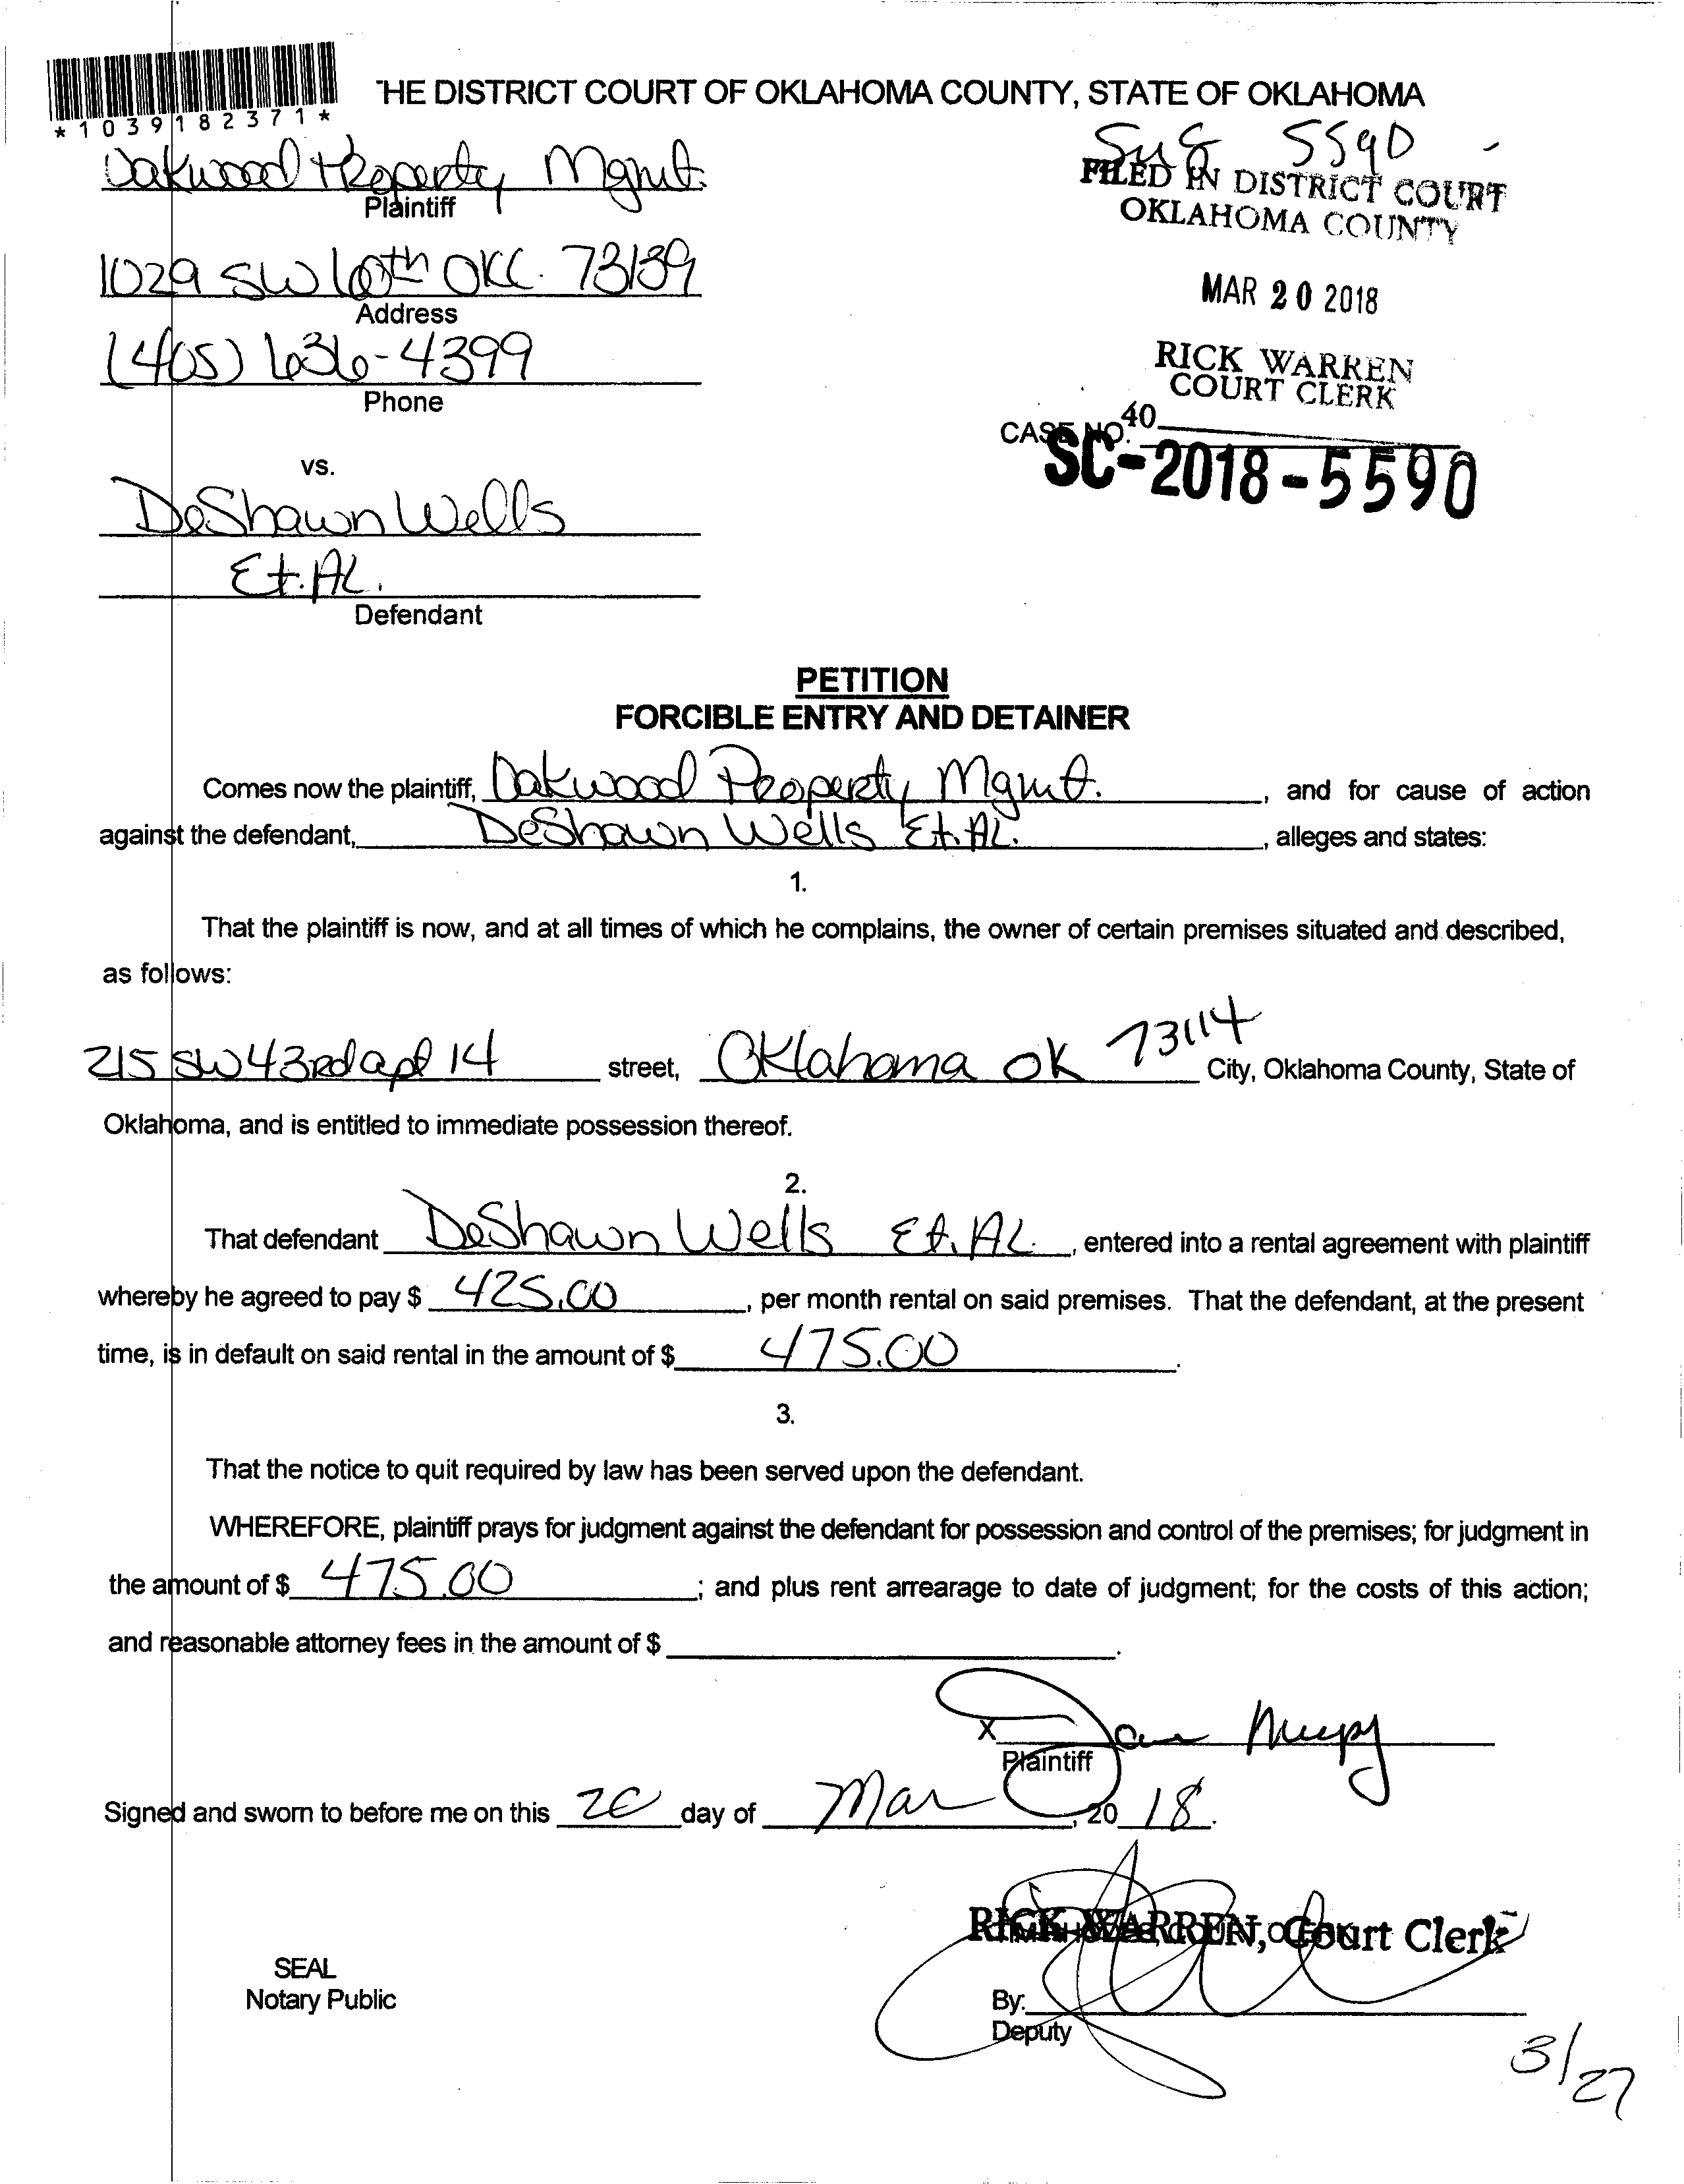 *1039182371*
THE DISTRICT COURT OF OKLAHOMA COUNTY, STATE OF OKLAHOMA
5590
Oakwood Property Mgmt.
Plaintiff
FILED IN DISTRICT COURT
OKLAHOMA COUNTY
1029 SW 60th OKC. 73139
Address
MAR 20 2018
(405) 636-4399
Phone
RICK WARREN
COURT CLERK
40
CASE NO.
SC-2018-5590
vs.
DeShawn Wells
Et. AL.
Defendant
PETITION
FORCIBLE ENTRY AND DETAINER
Comes now the plaintiff, Oakwood Property Mgmt. , and for cause of action
against the defendant, DeShawn Wells Et. AL. , alleges and states:
1.
That the plaintiff is now, and at all times of which he complains, the owner of certain premises situated and described,
as follows:
215 SW 43rd apt 14 street, Oklahoma OK 73114 City, Oklahoma County, State of
Oklahoma, and is entitled to immediate possession thereof.
2.
That defendant DeShawn Wells Et. AL. , entered into a rental agreement with plaintiff
whereby he agreed to pay $ 425.00 , per month rental on said premises. That the defendant, at the present
time, is in default on said rental in the amount of $ 475.00 .
3.
That the notice to quit required by law has been served upon the defendant.
WHEREFORE, plaintiff prays for judgment against the defendant for possession and control of the premises; for judgment in
the amount of $ 475.00 ; and plus rent arrearage to date of judgment; for the costs of this action;
and reasonable attorney fees in the amount of $ .
X
Plaintiff
Signed and sworn to before me on this 20 day of Mar , 20 18.
RICK WARREN, Court Clerk
SEAL
Notary Public
By:
Deputy
3/27